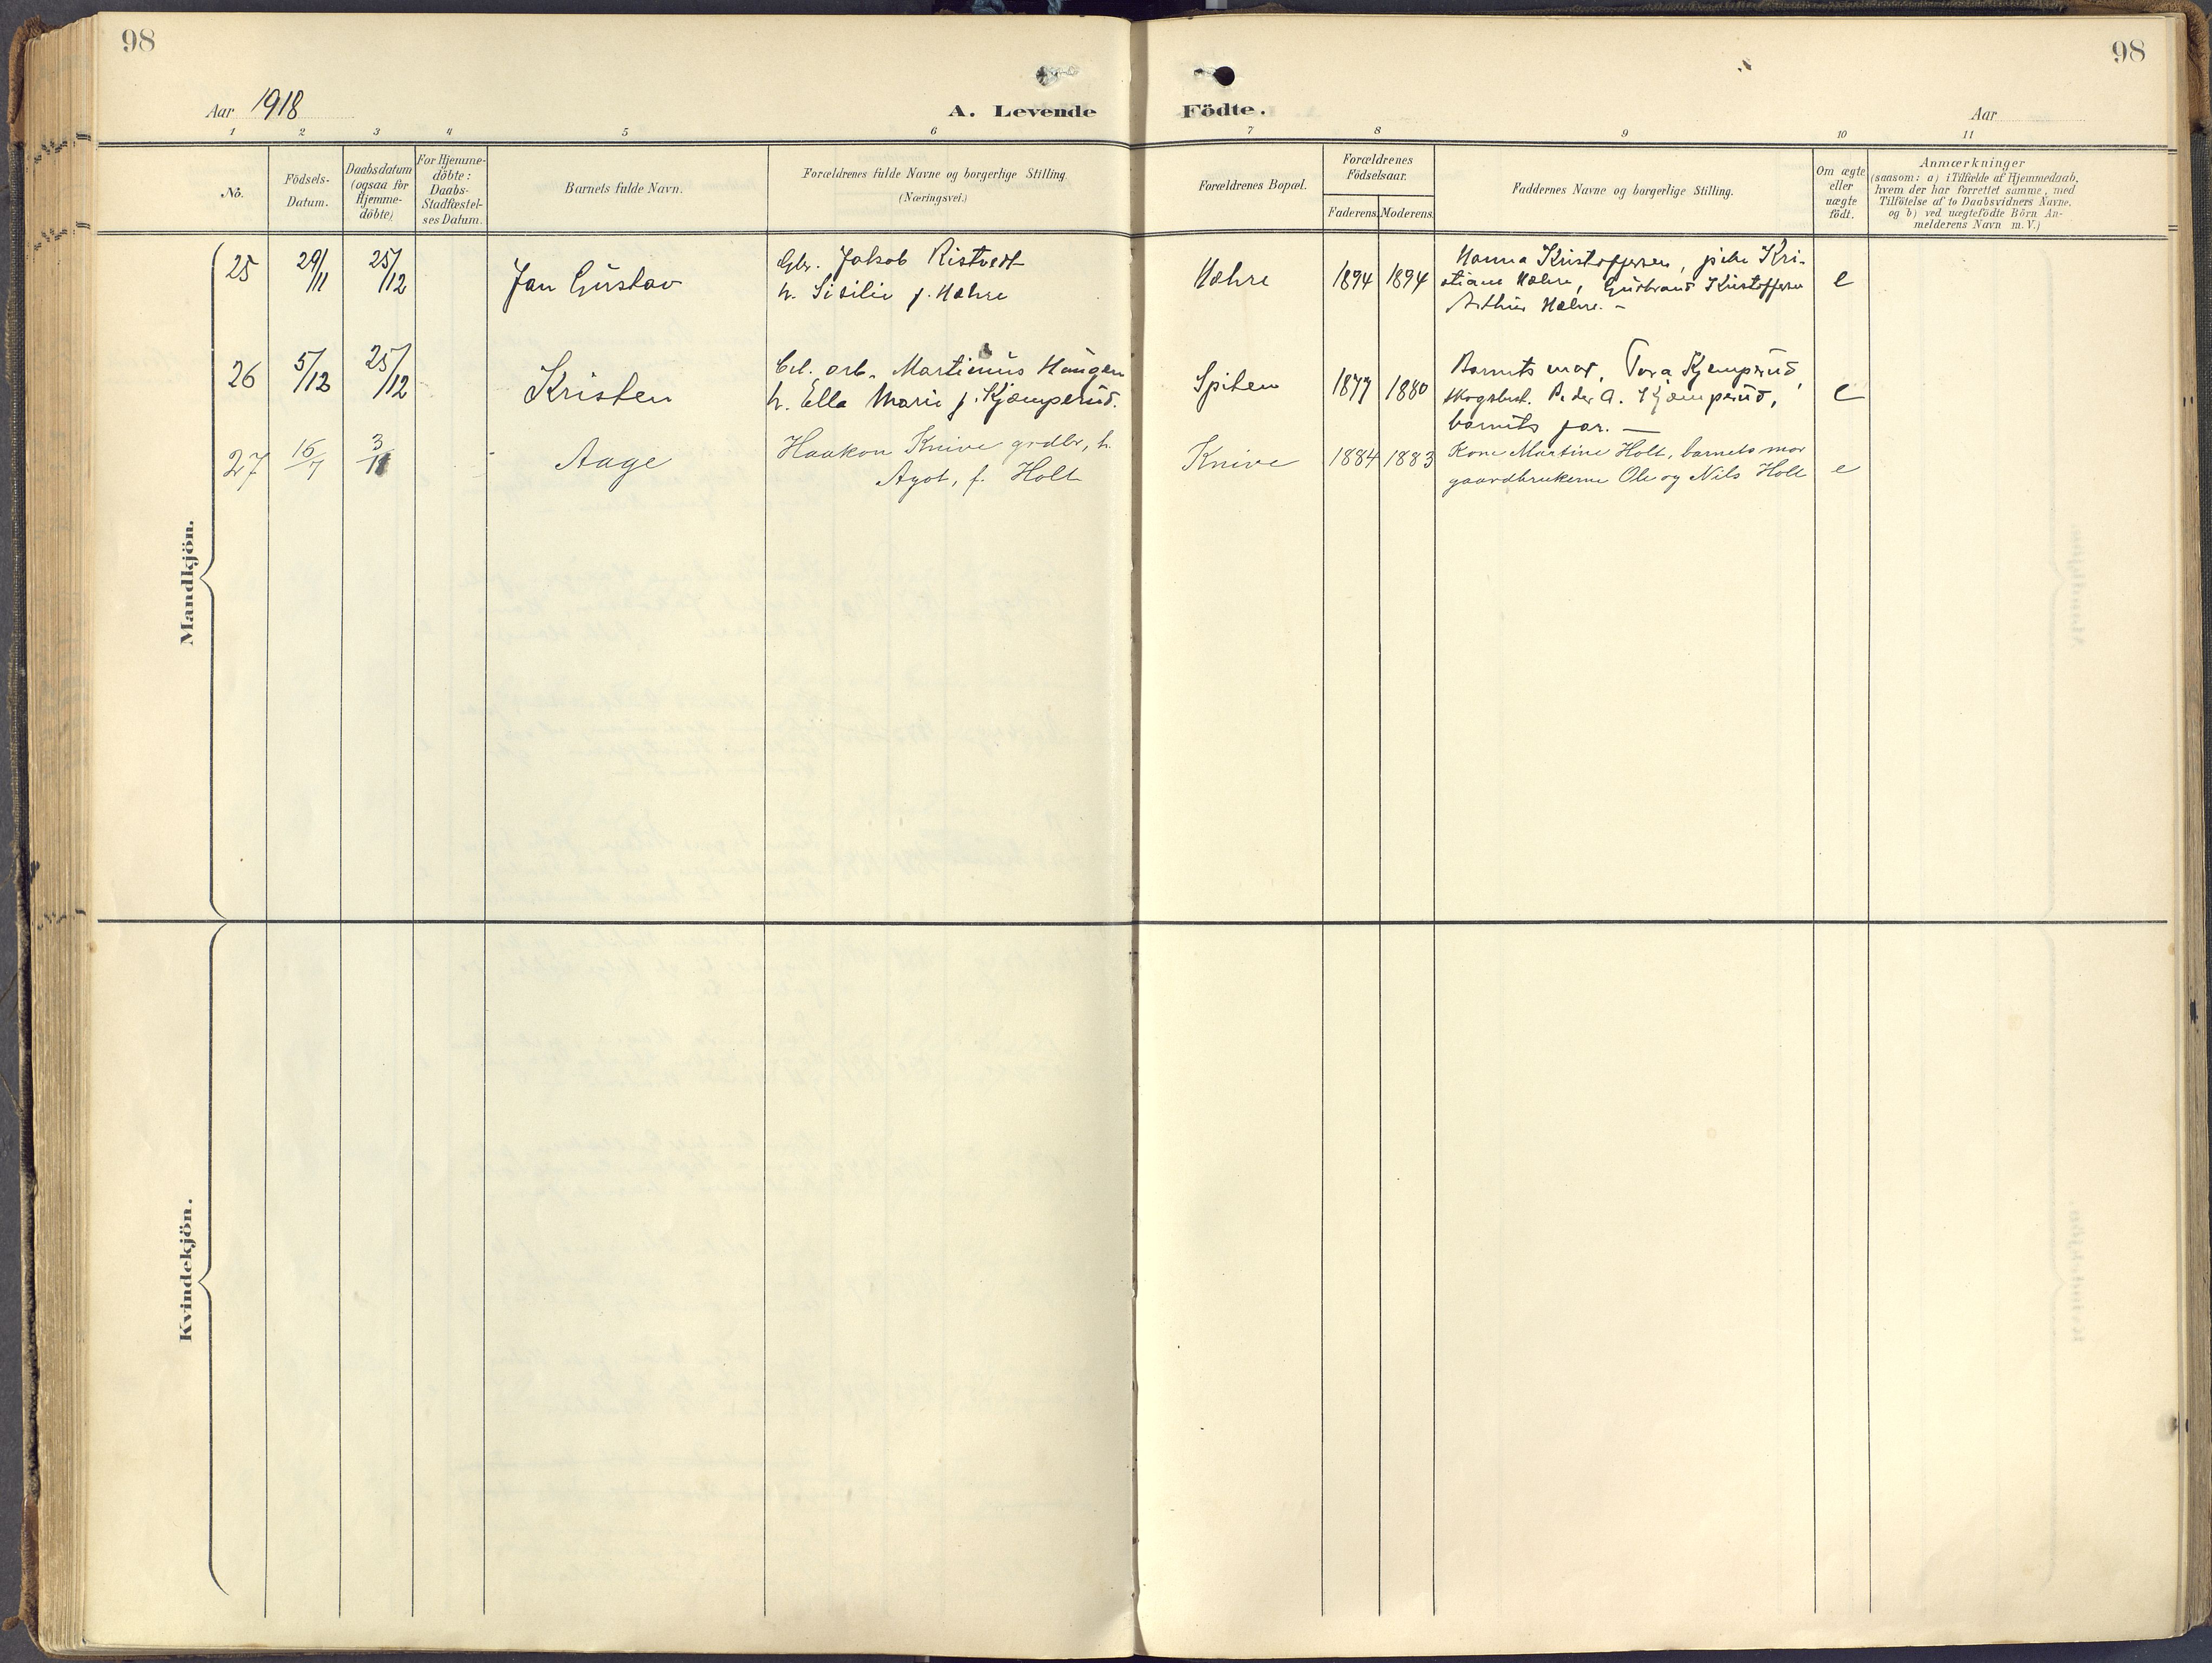 98
98
Aar 1918
A. Levende Födte.
Aar
1 2 3 4 5 6 7 8 9 10 11
No.
Födsels-
Datum.
Daabsdatum
(ogsaa for
Hjemme-
döbte)
For Hjemme-
döbte:
Daabs-
Stadfæstel-
ses Datum.
Barnets fulde Navn.
Forældrenes fulde Navne og borgerlige Stilling.
(Næringsvei.)
Forældrenes Bopæl.
Forældrenes
Födselsaar.
Faderens. Moderens.
Faddernes Navne og borgerlige Stilling.
Om ægte
eller
uægte
födt.
Anmærkninger
(saasom: a) i Tilfælde af Hjemmedaab,
hvem der har forrettet samme, med
Tilföielse af to Daabsvidners Navne.
og b) ved uægtefödte Börn An-
melderens Navn m. V.)
Mandkjön.
25
29/11
25/12
Jan Gustav
Gbr. Jakob Ristvedt
h. Sisilie f. Hæhre
Hæhre
1894 1894
Hanna Kristoffersen, pike Kri-
stiane Hæhre, Gudbrand Kristoffersen
Arthur Hæhre. -
e
26
5/12
25/12
Kristen
Cel. arb. Martinius Haugen
h. Ella Marie f. Kjæmperud.
Spiten
1877 1880
Barnets mor, Tora Kjemperud,
skogsbest. Peder A. Kjæmperud,
barnets far. —
e
27
16/7
3/11
Aage
Haakon Knive grdbr, h.
Agot, f. Holt
Knive
1884 1883
Kone Martine Holt, barnets mor
gaardbrukerne Ole og Nils Holt
e
Kvindekjön.